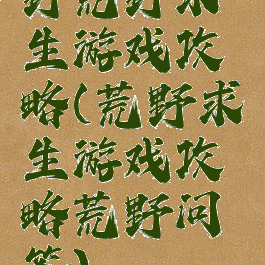 野荒野求
生游戏攻
略(荒野求
生游戏攻
略荒野问
答)